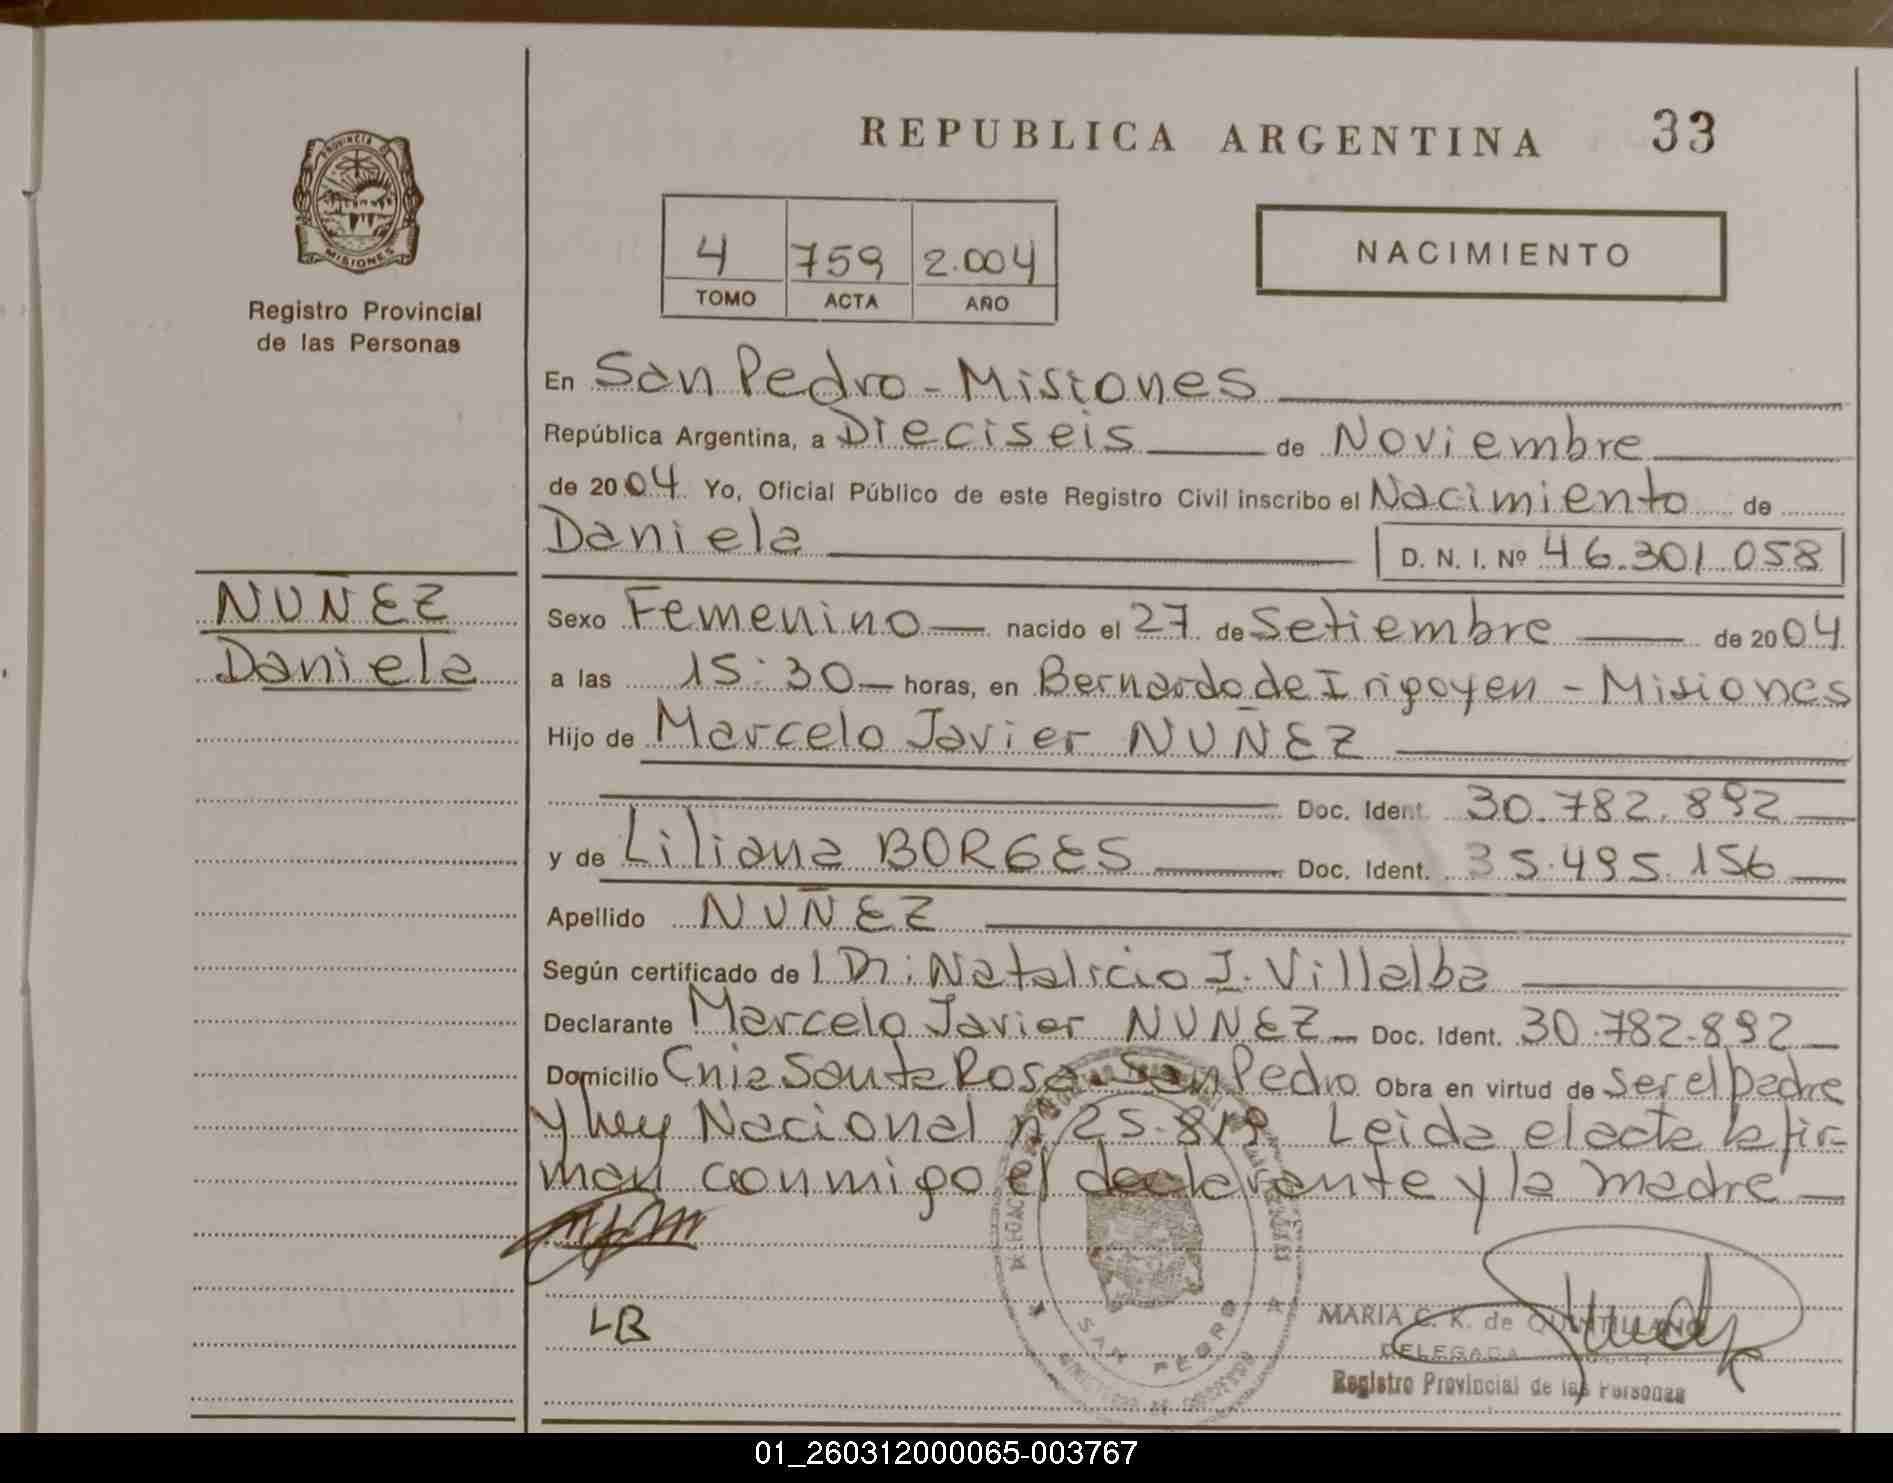 REPUBLICA ARGENTINA 33
PROVINCIA DE
MISIONES
Registro Provincial
de las Personas
4 759 2.004
TOMO ACTA AÑO
NACIMIENTO
En San Pedro - Misiones
República Argentina, a Dieciseis de Noviembre
de 2004 Yo, Oficial Público de este Registro Civil inscribo el Nacimiento de
Daniela D. N. I. Nº 46.301.058
NUÑEZ
Daniela
Sexo Femenino nacido el 27 de Setiembre de 2004
a las 15:30 horas, en Bernardo de Irigoyen - Misiones
Hijo de Marcelo Javier NUÑEZ
Doc. Ident. 30.782.892
y de Liliana BORGES Doc. Ident. 35.495.156
Apellido NUÑEZ
Según certificado de Natalicio J. Villalba
Declarante Marcelo Javier NUNEZ Doc. Ident. 30.782.892
Domicilio Cnia Santa Rosa - San Pedro Obra en virtud de ser el padre
y ley Nacional nº 25.819 Leida el acta la fir-
man conmigo el declarante y la madre
LB
SAN PEDRO
MARIA C. K. de QUINTILLANO
DELEGADA
Registro Provincial de las Personas
01_260312000065-003767